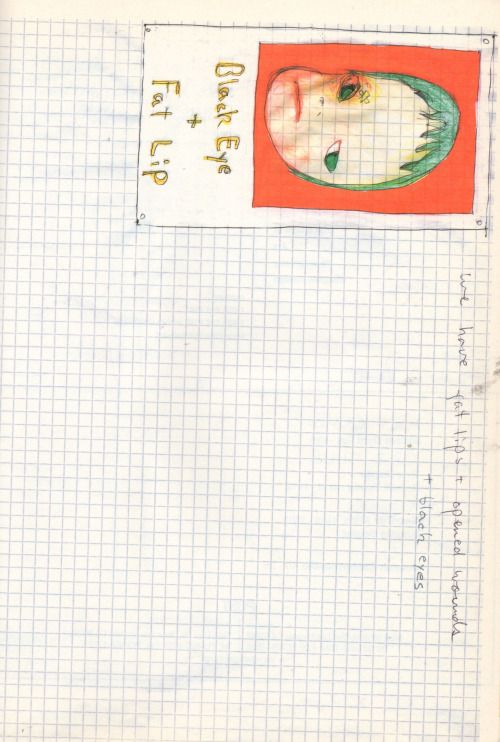 Black Eye
+
Fat Lip
we have fat lips + opened wounds
+ black eyes